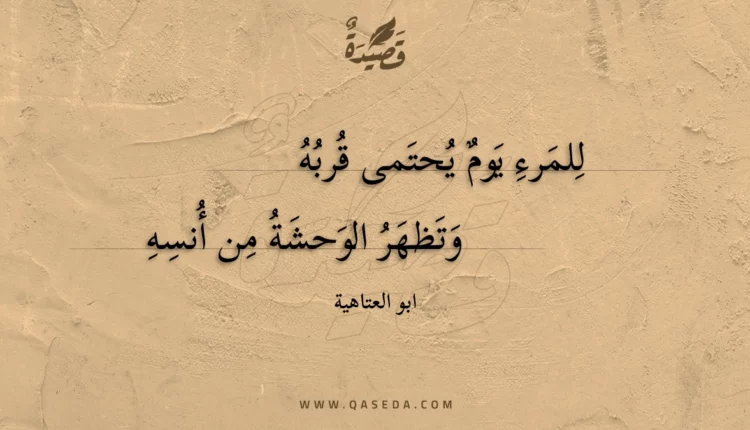 قَصِيدَةٌ
لِلمَرءِ يَومٌ يُحتَمى قُربُهُ
وَتَظهَرُ الوَحشَةُ مِن أُنسِهِ
ابو العتاهية
WWW.QASEDA.COM